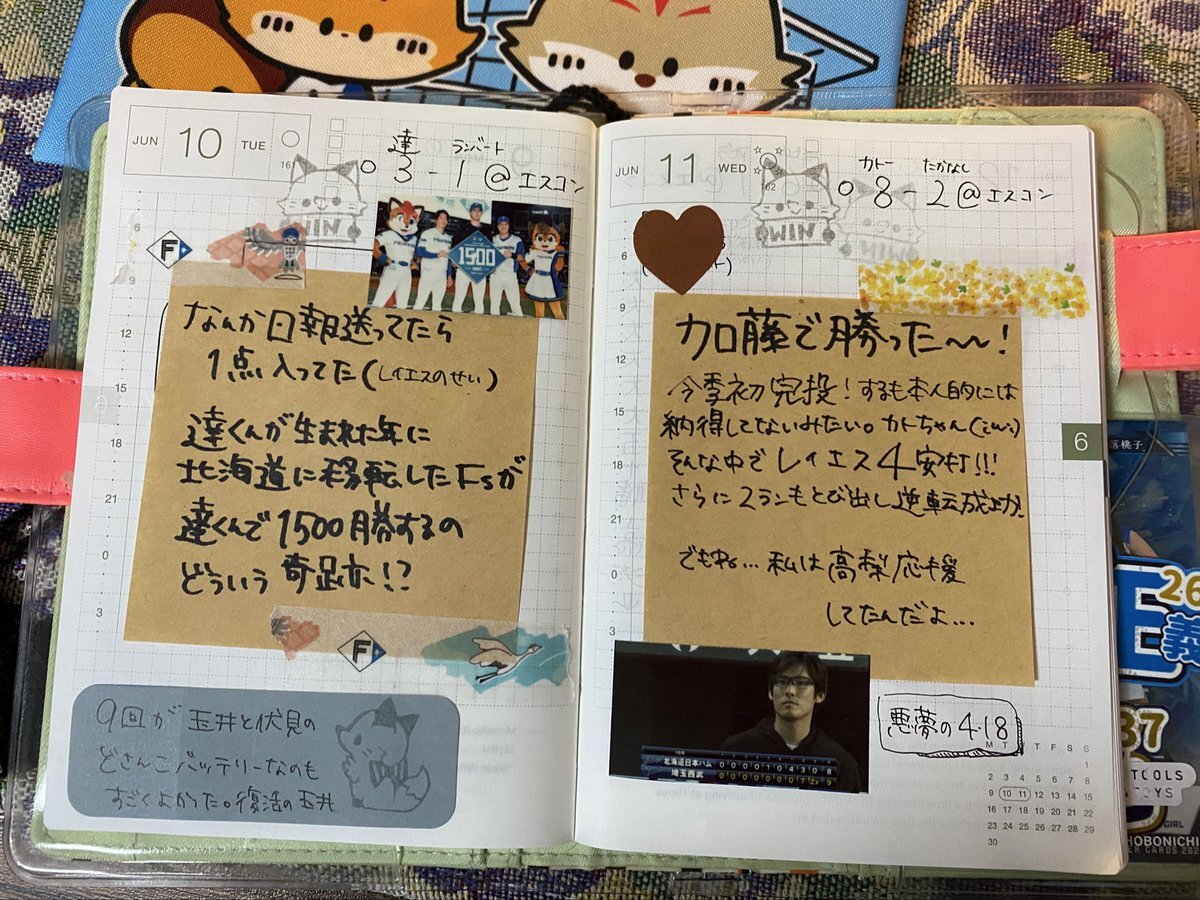 JUN 10 TUE
161
達 ランバート
○ 3 - 1 @エスコン
WIN
F
1500
6
9
12
15
18
21
0
3
なんか日報送ってたら
1点入ってた(レイエスのせい)
達くんが生まれた年に
北海道に移転したFsが
達くんで1500勝するの
どういう奇跡!?
F
9回が玉井と伏見の
どさんこバッテリーなのも
すごくよかった。復活の玉井
JUN 11 WED
162
カトー たかなし
○ 8 2 @エスコン
WIN
6
9
12
15
18
21
0
3
加藤で勝った〜!
今季初完投!するも本人的には
納得してないみたい。カトちゃん
そんな中でレイエス4安打!!!
さらに2ランもとび出し逆転成功!
でもね…私は高梨応援
してたんだよ…
6
北海道日本ハム 0 0 0 0 1 0 4 3 0 8
埼玉西武
悪夢の4.18
M T F S S
1
2 3 4 5 6 7 8
9 10 11 12 13 14 15
16 17 18 19 20 21 22
23 24 25 26 27 28 29
30
落桃子
26
E
義
37
TOOLS
& TOYS
GIRL
HOBONICHI